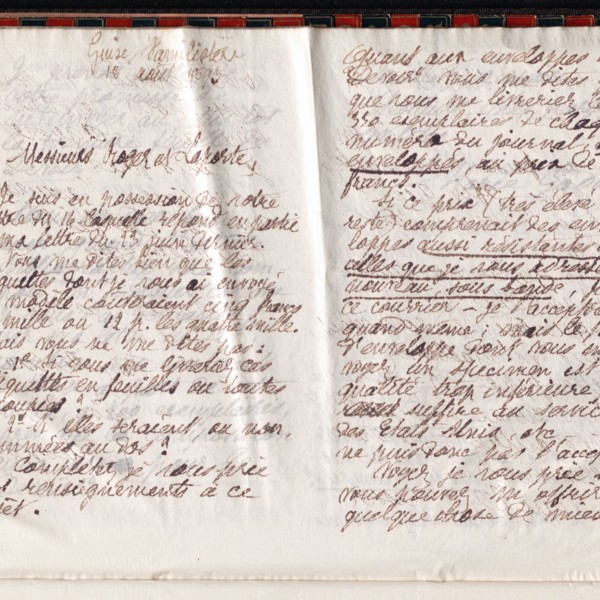 Guise Familistère
18 août 1879
Messieurs Roger et Laporte,
Je suis en possession de votre
lettre du 16 laquelle répond en partie
ma lettre du 13 juin dernier.
Vous me dites bien que les
quettes dont je vous ai envoyé
modèle couteraient cinq francs
mille ou 12 f. les quatre mille.
ais vous ne me dites pas:
1º Si vous me livreriez ces
quettes en feuilles ou toutes
coupées?
2º Si elles seraient, ou non,
ommées au dos?
Complétez je vous prie
s renseignements à ce
jet.
Quant aux enveloppes
Devoir vous me dites
que vous me livreriez
350 exemplaires de chaq
numéro du journal,
enveloppés, au prix de
francs.
Si ce prix très élevé
reste comprenait des env
loppes aussi résistantes
celles que je vous adresse
nouveau sous bande
ce courrier - je l'accepte
quand même; mais le p
d'enveloppe dont vous
voyez un spécimen est
qualité trop inférieure
suffire au servic
des Etats Unis, etc
ne puis donc pas l'accep
Voyez je vous prie
vous pouvez m'offrir
quelque chose de mieu